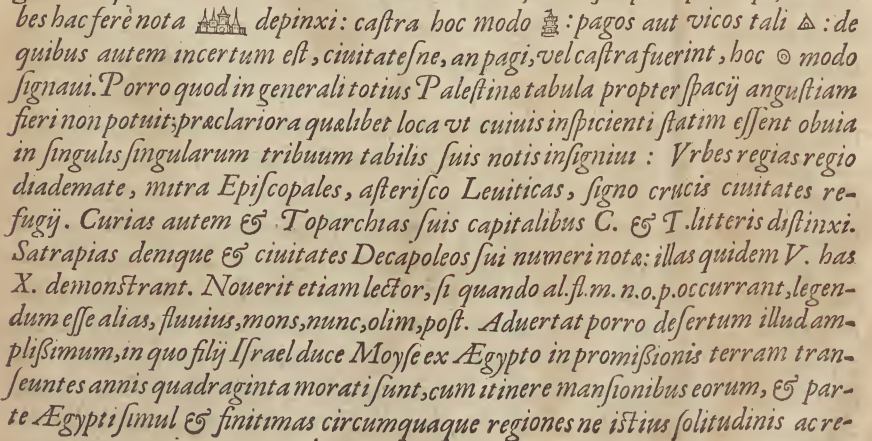 bes hac ferè nota depinxi: caſtra hoc modo : pagos aut vicos tali : de
quibus autem incertum eſt, ciuitateſne, an pagi, vel caſtra fuerint, hoc modo
ſignaui. Porro quod in generali totius Palæſtinæ tabula propter ſpacij anguſtiam
fieri non potuit; præclariora quælibet loca vt cuiuis inſpicienti ſtatim eſſent obuia
in ſingulis ſingularum tribuum tabilis ſuis notis inſigniui : Vrbes regias regio
diademate, mitra Epiſcopales, aſteriſco Leuiticas, ſigno crucis ciuitates re-
fugij. Curias autem & Toparchias ſuis capitalibus C. & T. litteris diſtinxi.
Satrapias denique & ciuitates Decapoleos ſui numeri notæ: illas quidem V. has
X. demonſtrant. Nouerit etiam lector, ſi quando al. fl. m. n. o. p. occurrant, legen-
dum eſſe alias, fluuius, mons, nunc, olim, poſt. Aduertat porro deſertum illud am-
plißimum, in quo filij Iſrael duce Moyſe ex Ægypto in promißionis terram tran-
ſeuntes annis quadraginta morati ſunt, cum itinere manſionibus eorum, & par-
te Ægypti ſimul & finitimas circumquaque regiones ne iſtius ſolitudinis ac re-